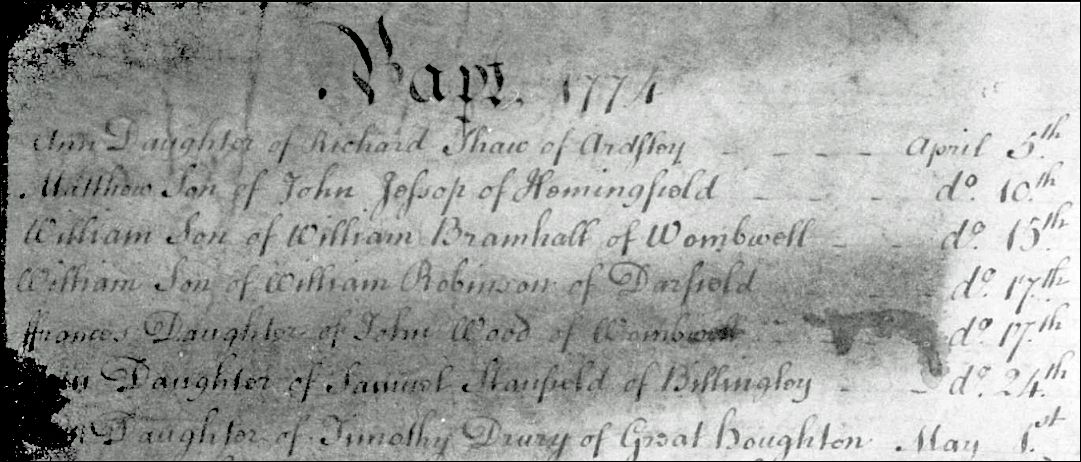 Bapt. 1774
Ann Daughter of Richard Shaw of Ardsley - - - - April 5.th
Matthew Son of John Jessop of Hemingfield - - - do. 10.th
William Son of William Bramhall of Wombwell - - do. 15.th
William Son of William Robinson of Darfield - - - do. 17.th
ffrances Daughter of John Wood of Wombwell - - do. 17.th
Daughter of Samuel Stanfield of Billingley - - do. 24.th
Daughter of Timothy Drury of Great Houghton May 1.st